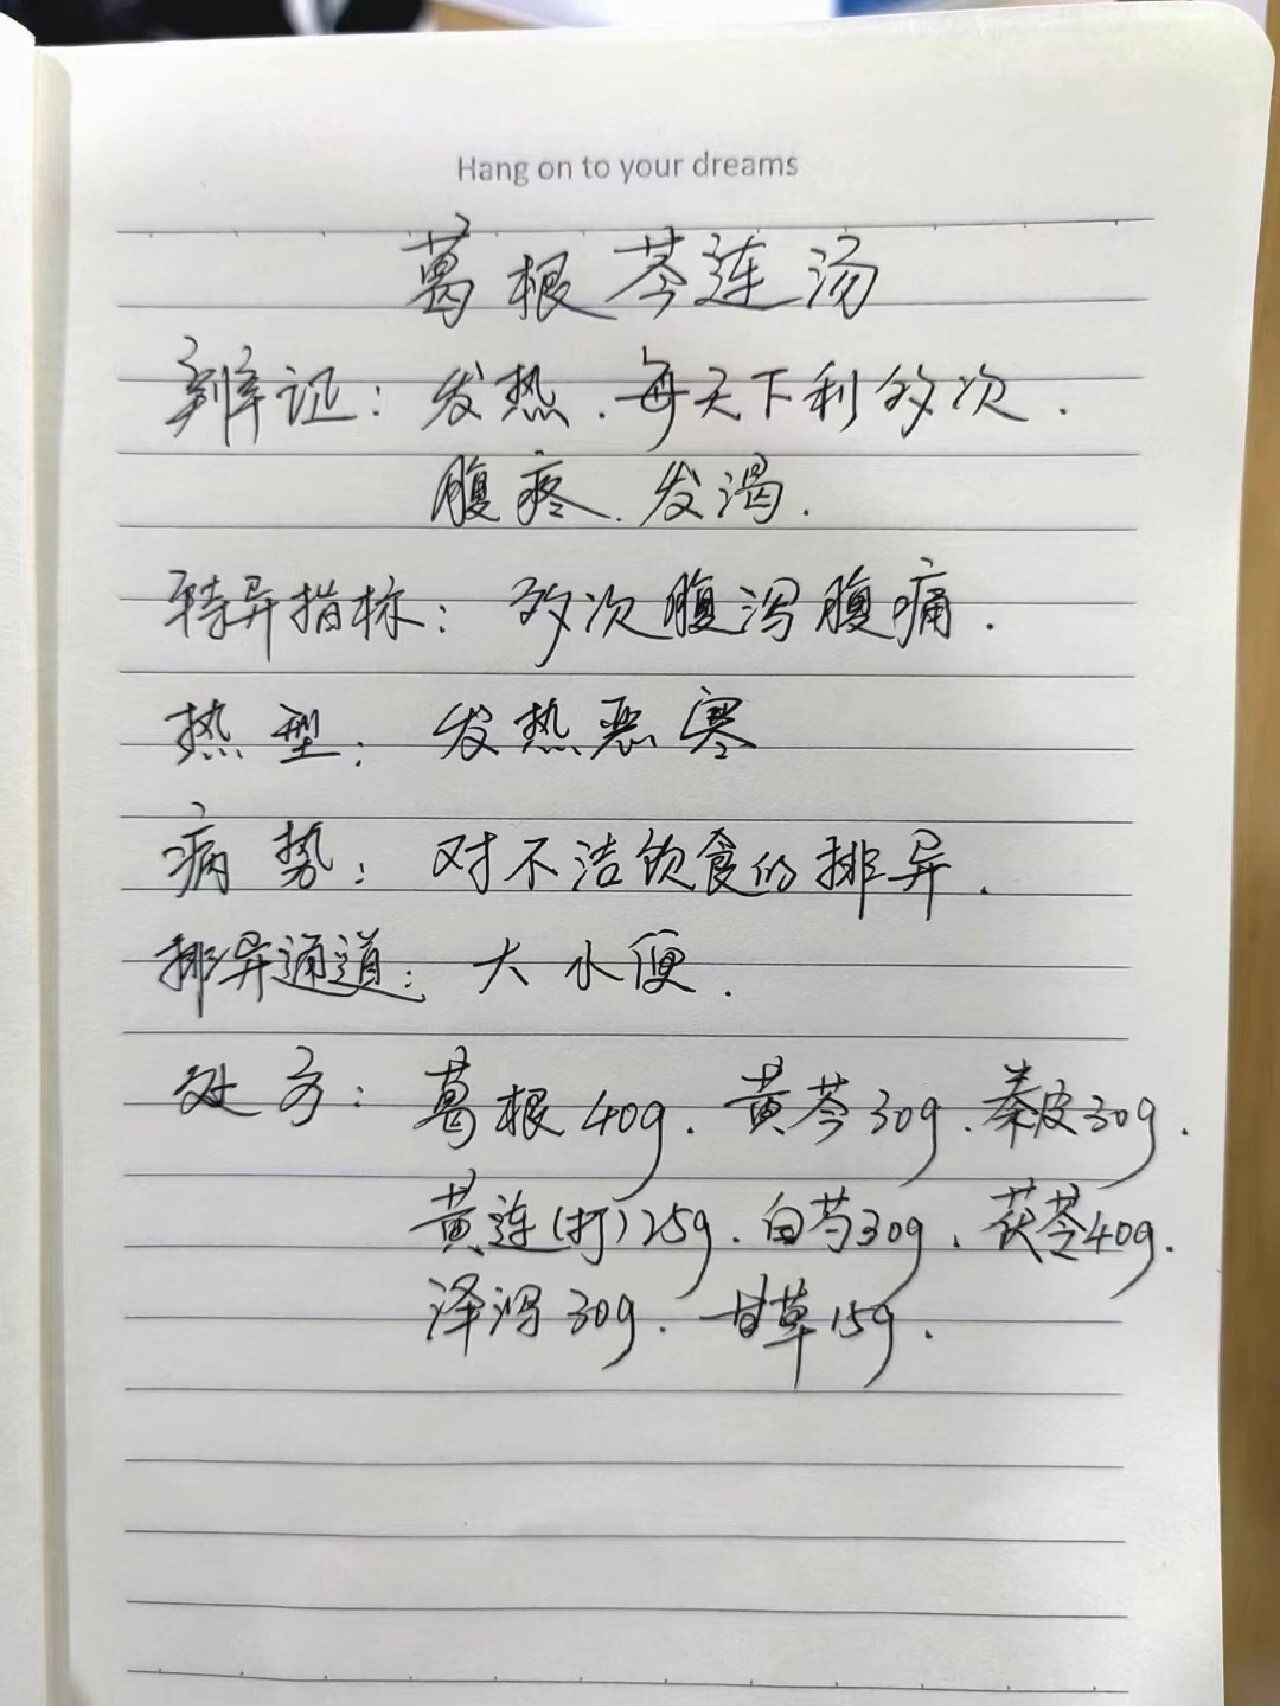 Hang on to your dreams
葛根芩连汤
辨证：发热、每天下利多次、
腹疼、发渴.
特异指标：多次腹泻腹痛.
热型：发热恶寒
病势：对不洁饮食的排异.
排异通道：大水便.
处方：葛根40g、黄芩30g、秦皮30g、
黄连(打)25g、白芍30g、茯苓40g、
泽泻30g、甘草15g.